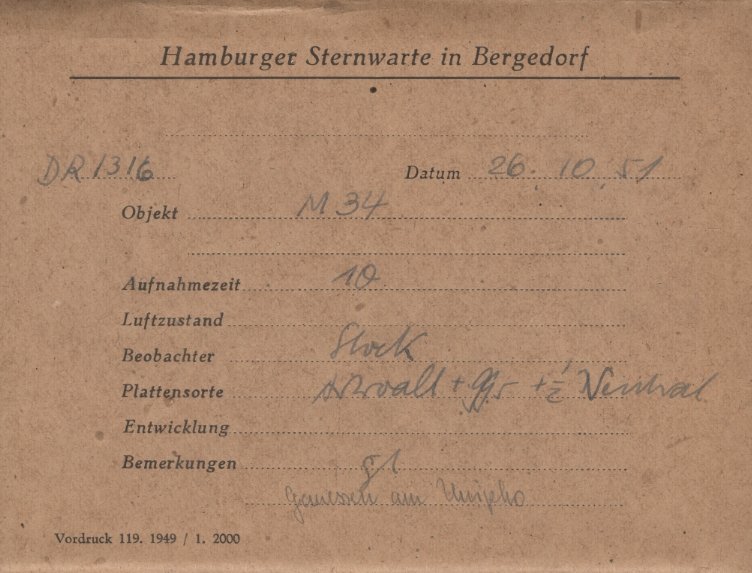 Hamburger Sternwarte in Bergedorf
DR 1316 Datum 26. 10. 51
Objekt M 34
Aufnahmezeit 10
Luftzustand
Beobachter Stock
Plattensorte + + ½ Neutral
Entwicklung
Bemerkungen gl
gemessen am Unipho
Vordruck 119. 1949 / 1. 2000